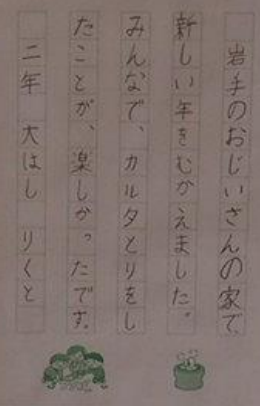 岩手のおじいさんの家で、
新しい年をむかえました。
みんなで、カルタとりをし
たことが、楽しかったです。
二年 大はし りくと